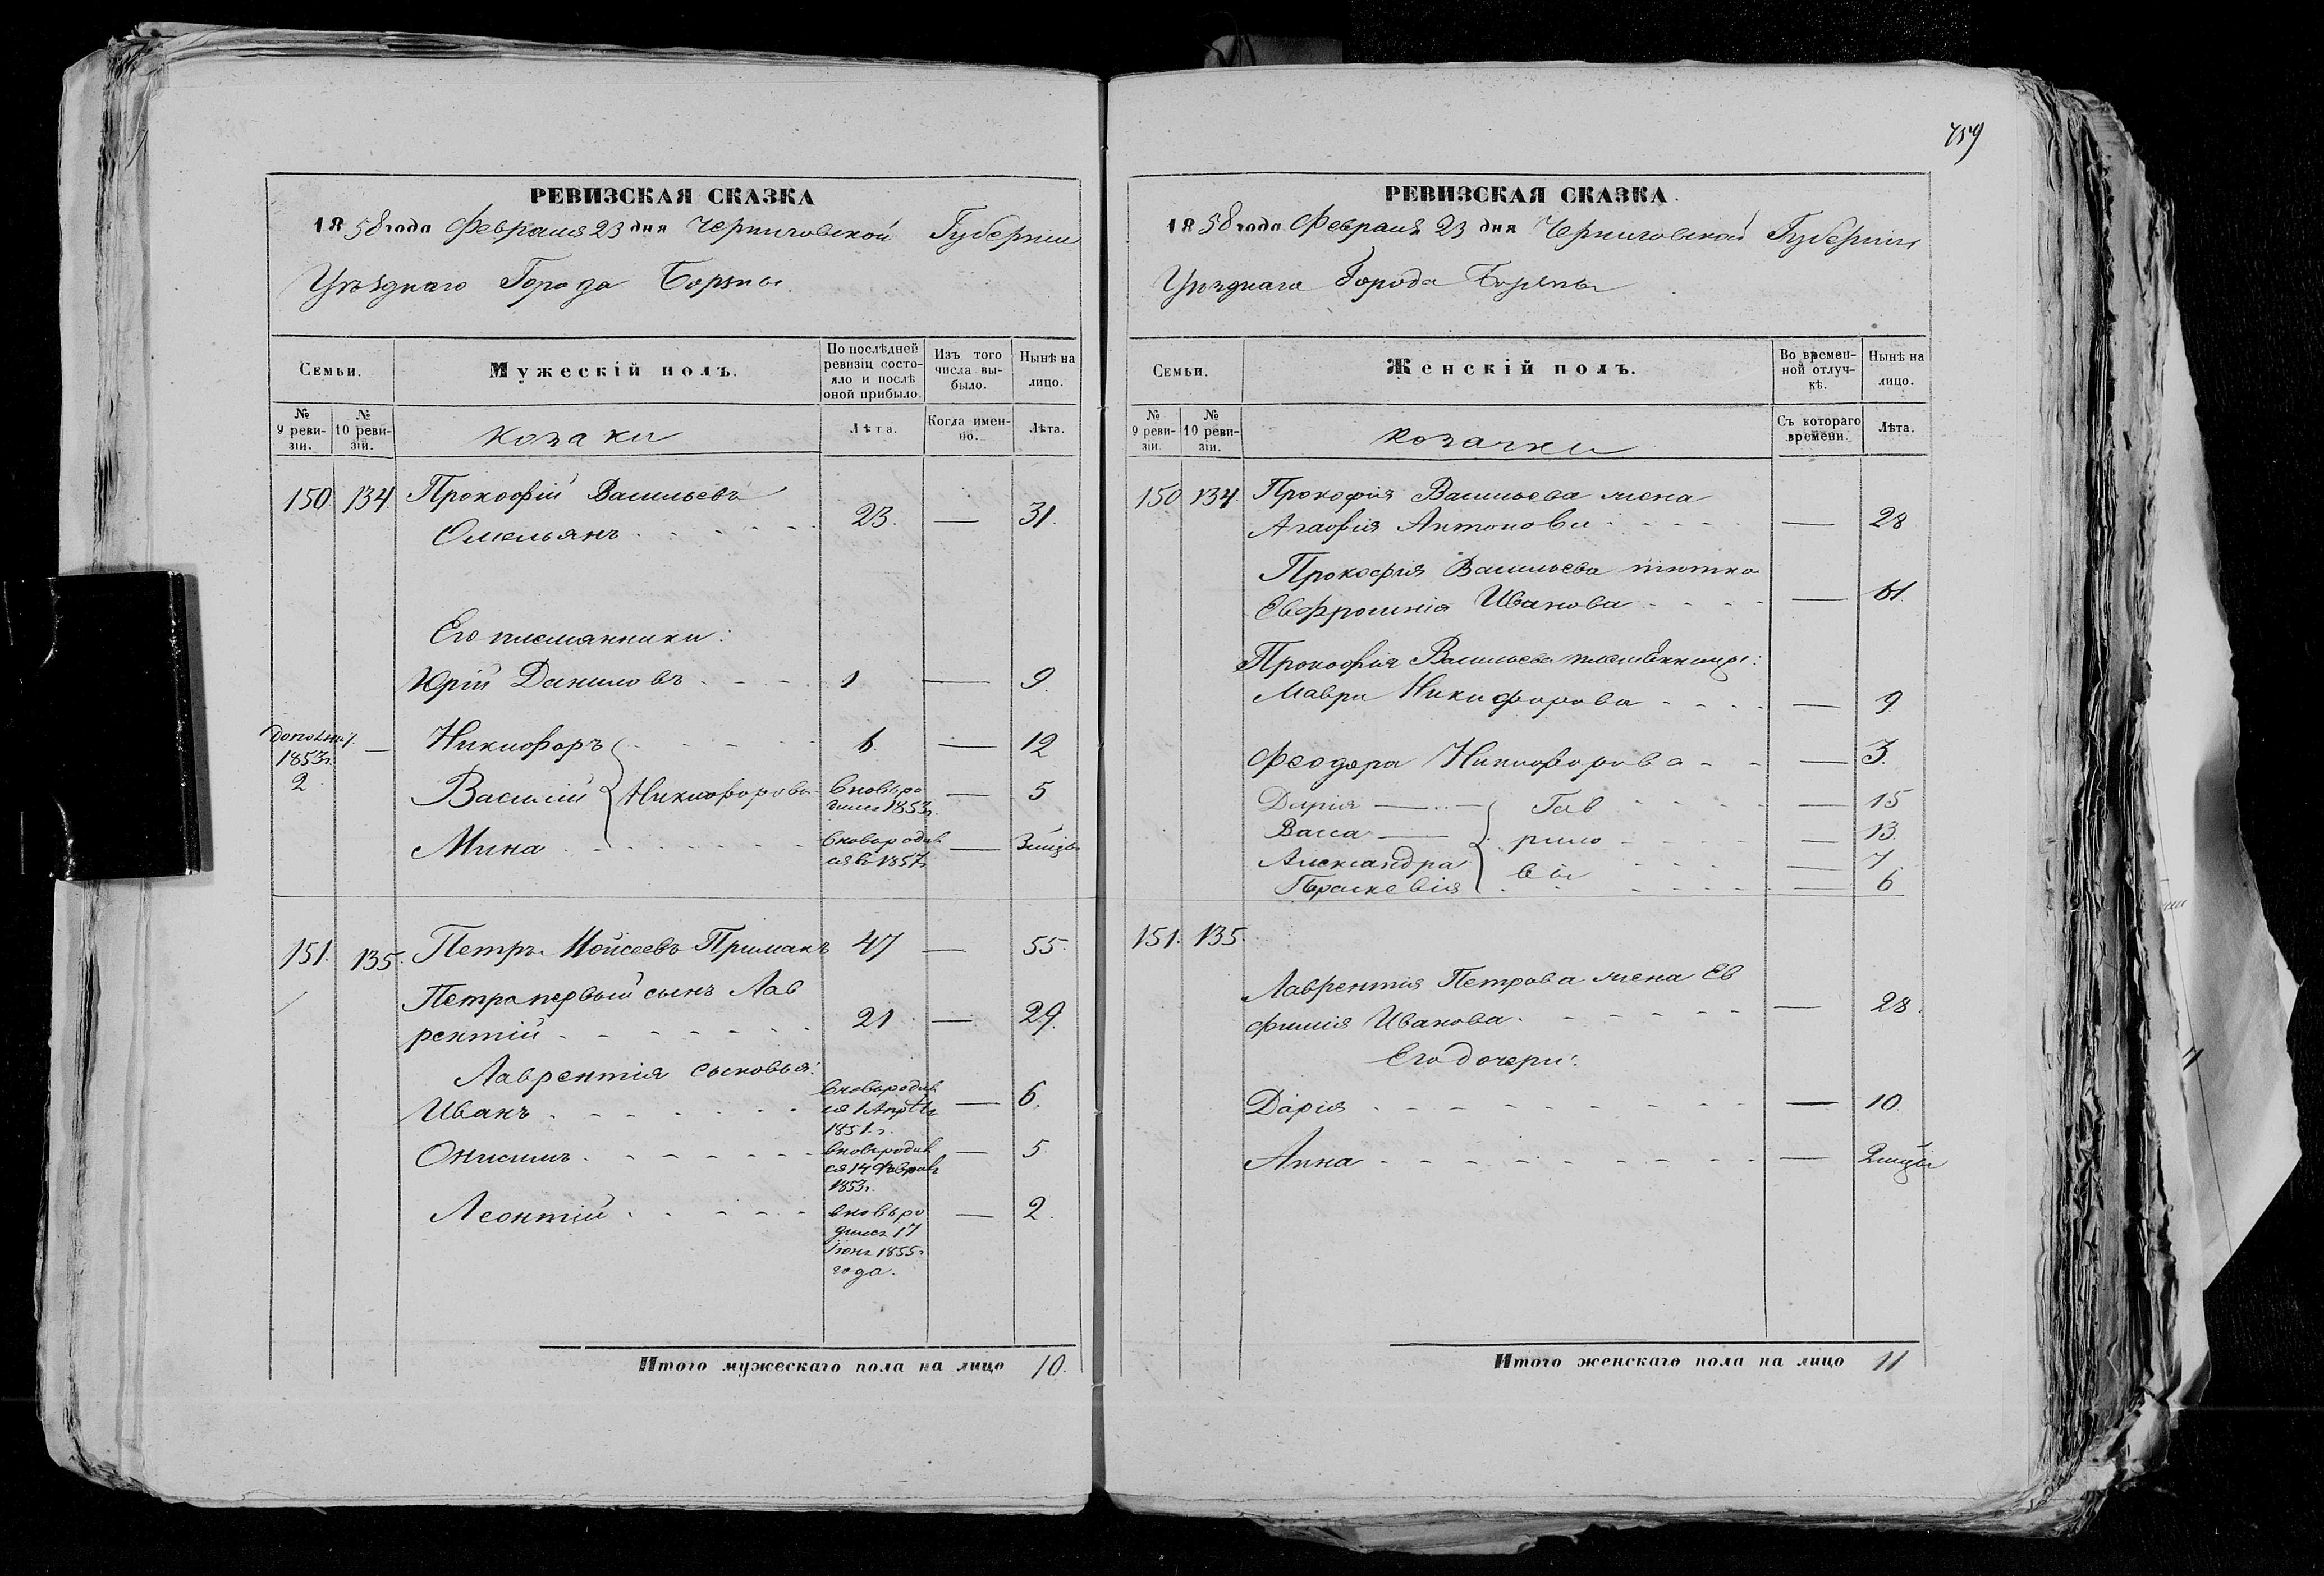 759
РЕВИЗСКАЯ СКАЗКА
1858 года Февраля 23 дня Черниговской Губерніи
Уѣзднаго Города Борзны
Семьи.
Мужескій полъ.
По послѣдней ревизіи состояло и послѣ оной прибыло.
Изъ того числа выбыло.
Нынѣ на лицо.
№ 9 ревизіи.
№ 10 ревизіи.
Козаки
Лѣта.
Когда именно.
Лѣта.
150 134. Прокофій Васильевъ
Омельянъ 23. — 31.
Его племянники:
Юрій Даниловъ 1 — 9.
дополнит. 1853г. 2. — Никифоръ 6. — 12
Василій } Никифоровы вновь родился 1853г. — 5
Мина вновь родился въ 1857г. — 3 мѣсцы
151. 135. Петръ Мойсеевъ Примакъ 47 — 55.
Петра первый сынъ Лав
рентій 21 — 29.
Лаврентія сыновья:
Иванъ вновь родився 1 Апрѣля 1851.г. — 6.
Онисимъ вновь родився 14 Февраля 1853г. — 5.
Леонтій вновь родился 17 Іюня 1855г. года. — 2.
Итого мужескаго пола на лицо 10.
РЕВИЗСКАЯ СКАЗКА.
1858 года Февраля 23 дня Черниговской Губерніи
Уѣзднаго Города Борзны
Семьи.
Женскій полъ.
Во временной отлучкѣ.
Нынѣ на лицо.
№ 9 ревизіи.
№ 10 ревизіи.
Козачки
Съ котораго времени.
Лѣта.
150 134. Прокофія Васильева жена
Агафія Антонова — 28
Прокофія Васильева тютка
Евфросинія Иванова — 61.
Прокофія Васильева племѣнницы:
Мавра Никифорова — 9.
Феодора Никифорова — 3.
Дарія } Гав — 15
Васса рило — 13.
Александра вы — 7.
Параскевія — 6
151. 135.
Лаврентія Петрова жена Ев
фимія Иванова. — 28.
Его дочери:
Дарія — 10
Анна — 2 мѣсцы
Итого женскаго пола на лицо 11